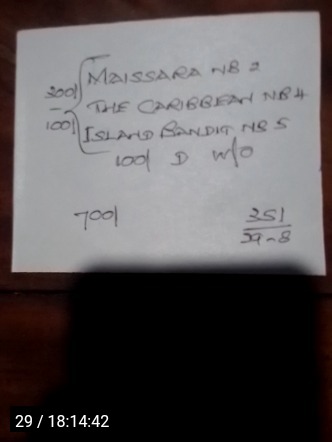 300/ MAISSARA NB 2
- THE CARIBBEAN NB 4
100/ ISLAND BANDIT NB 5
100/ D W/O
700/
351
39-8
29 / 18:14:42